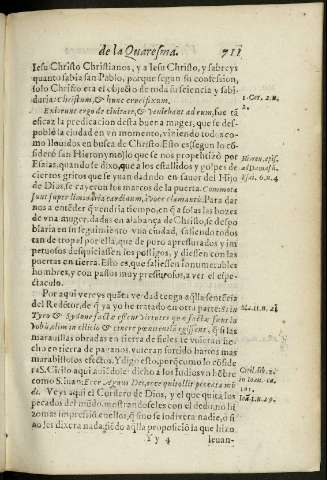 de la Quaresma. 711
Iesu Christo Christianos, y a Iesu Christo, y sabreys
quanto sabia san Pablo, porque segun su confession,
solo Christo era el objecto de toda su sciencia y sabi-
duria: Christum, & hunc crucifixum.
1. Cor. 2. n.
2.
Exierunt ergo de ciuitate, & veniebant ad eum, fue tã
eficaz la predicacion desta buena muger, que se des-
poblò la ciudad en vn momento, viniendo todos co-
mo llouidos en busca de Christo. Esto es segun lo cõsi-
derò san Hieronymo, lo que se nos prophetizò por
Esaias, quando se dixo, que a los estallidos y golpes de
ciertos gritos que se yuan dando en fauor del Hijo
de Dios, se cayeron los marcos de la puerta. Commota
sunt super liminaria cardinum, à voce clamantis. Para dar
Hieron. epis.
ad Damasũ.
Isai. 6. n. 4
nos a entẽder q̃ vendria tiempo, en q̃ a solas las bozes
de vna muger, dadas en alabança de Christo, se despo
blaria en su seguimiento vna ciudad, saliendo todos
tan de tropel por ella, que de puro apressurados y im
petuosos desquiciassen los postigos, y diessen con las
puertas en tierra. Esto es, que saliessen innumerables
hombres, y con passos muy presurosos, a ver el espe-
ctaculo.
Por aqui vereys quãta verdad tenga aq̃lla sentẽcia
del Redẽtor, de q̃ ya yo he tratado en otra parte: Si in
Mat. 11. n. 21
Tyro & Sydone factæ essent virtutes quæ factæ sunt in
vobis, olim in cilicio & cinere pœnitentiã egissent, q̃ si las
marauillas obradas en tierra de fieles se vuieran he-
cho en tierra de paganos, vuieran surtido hartos mas
marabillosos efectos. Y digo esto, porq̃ como lo cõside
ra S. Cirilo aqui auiẽdole dicho a los Iudios vn hõbre
como S. Iuan: Ecce Agnus Dei, ecce qui tollit peccata mũ
di. Veys aqui el Cordero de Dios, y el que quita los
Cyril. lib. 2.
in Ioan. ca.
Ioã. 1. n. 29.
pecados del mũdo, mostrandoseles con el dedo, no hi
zomas impressiõ en ellos, q̃ sino se lo dixera nadie, ò si
no les dixera nada, y diẽdo aq̃lla proposiciõ la que hizo
Y y 4 leuan-